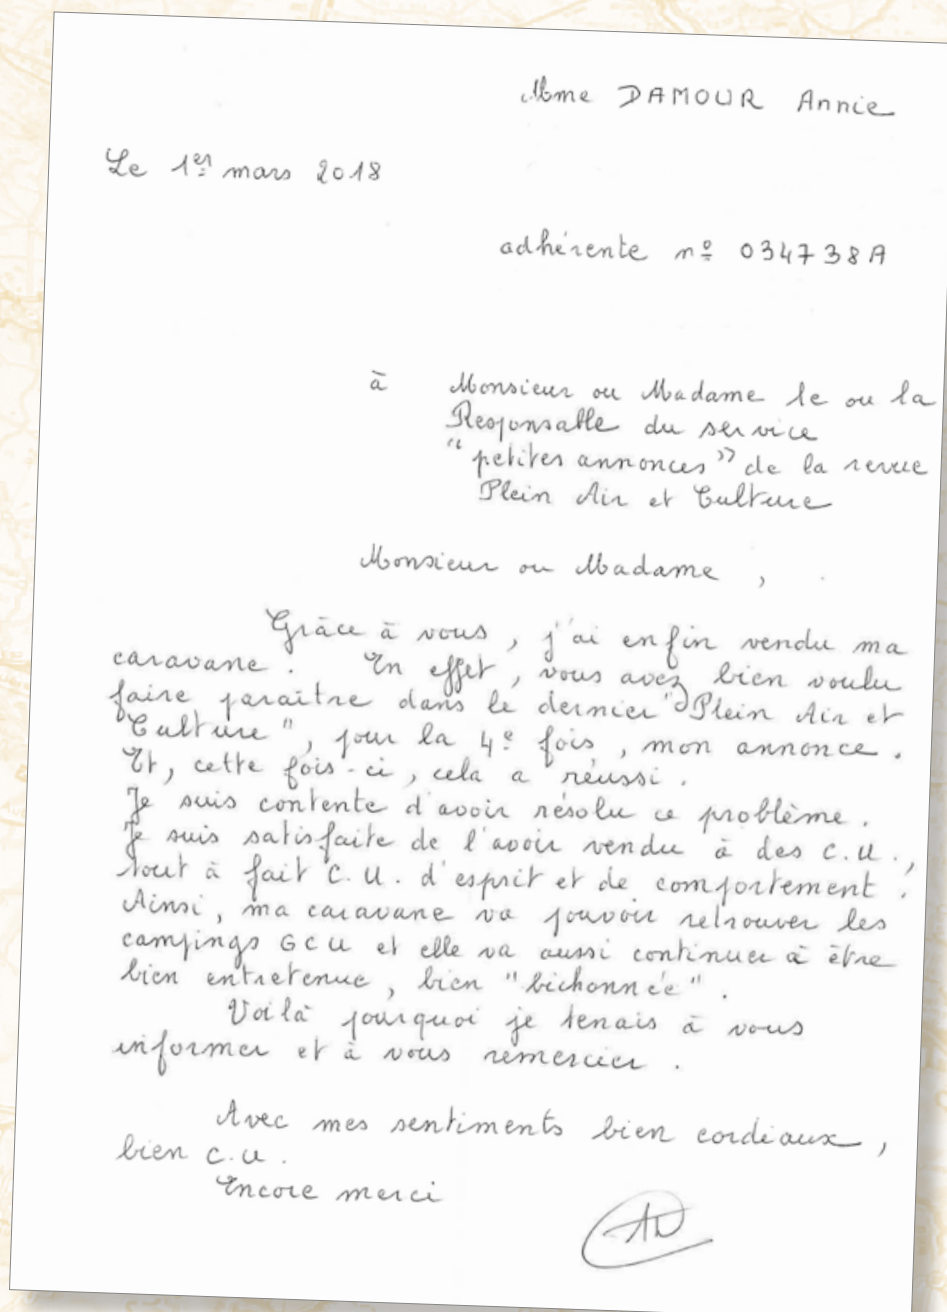 Mme DAMOUR Annie
Le 1er mars 2018
adhérente n° 034738A
à Monsieur ou Madame le ou la
Responsable du service
"petites annonces" de la revue
Plein Air et Culture
Monsieur ou Madame,
Grâce à vous, j'ai enfin vendu ma
caravane. En effet, vous avez bien voulu
faire paraître dans le dernier "Plein Air et
Culture", pour la 4e fois, mon annonce.
Et, cette fois-ci, cela a réussi.
Je suis contente d'avoir résolu ce problème.
Je suis satisfaite de l'avoir vendu à des C.U.,
tout à fait C.U. d'esprit et de comportement.
Ainsi, ma caravane va pouvoir retrouver les
campings GCU et elle va aussi continuer à être
bien entretenue, bien "bichonnée".
Voilà pourquoi je tenais à vous
informer et à vous remercier.
Avec mes sentiments bien cordiaux,
bien C.U.
Encore merci
AD